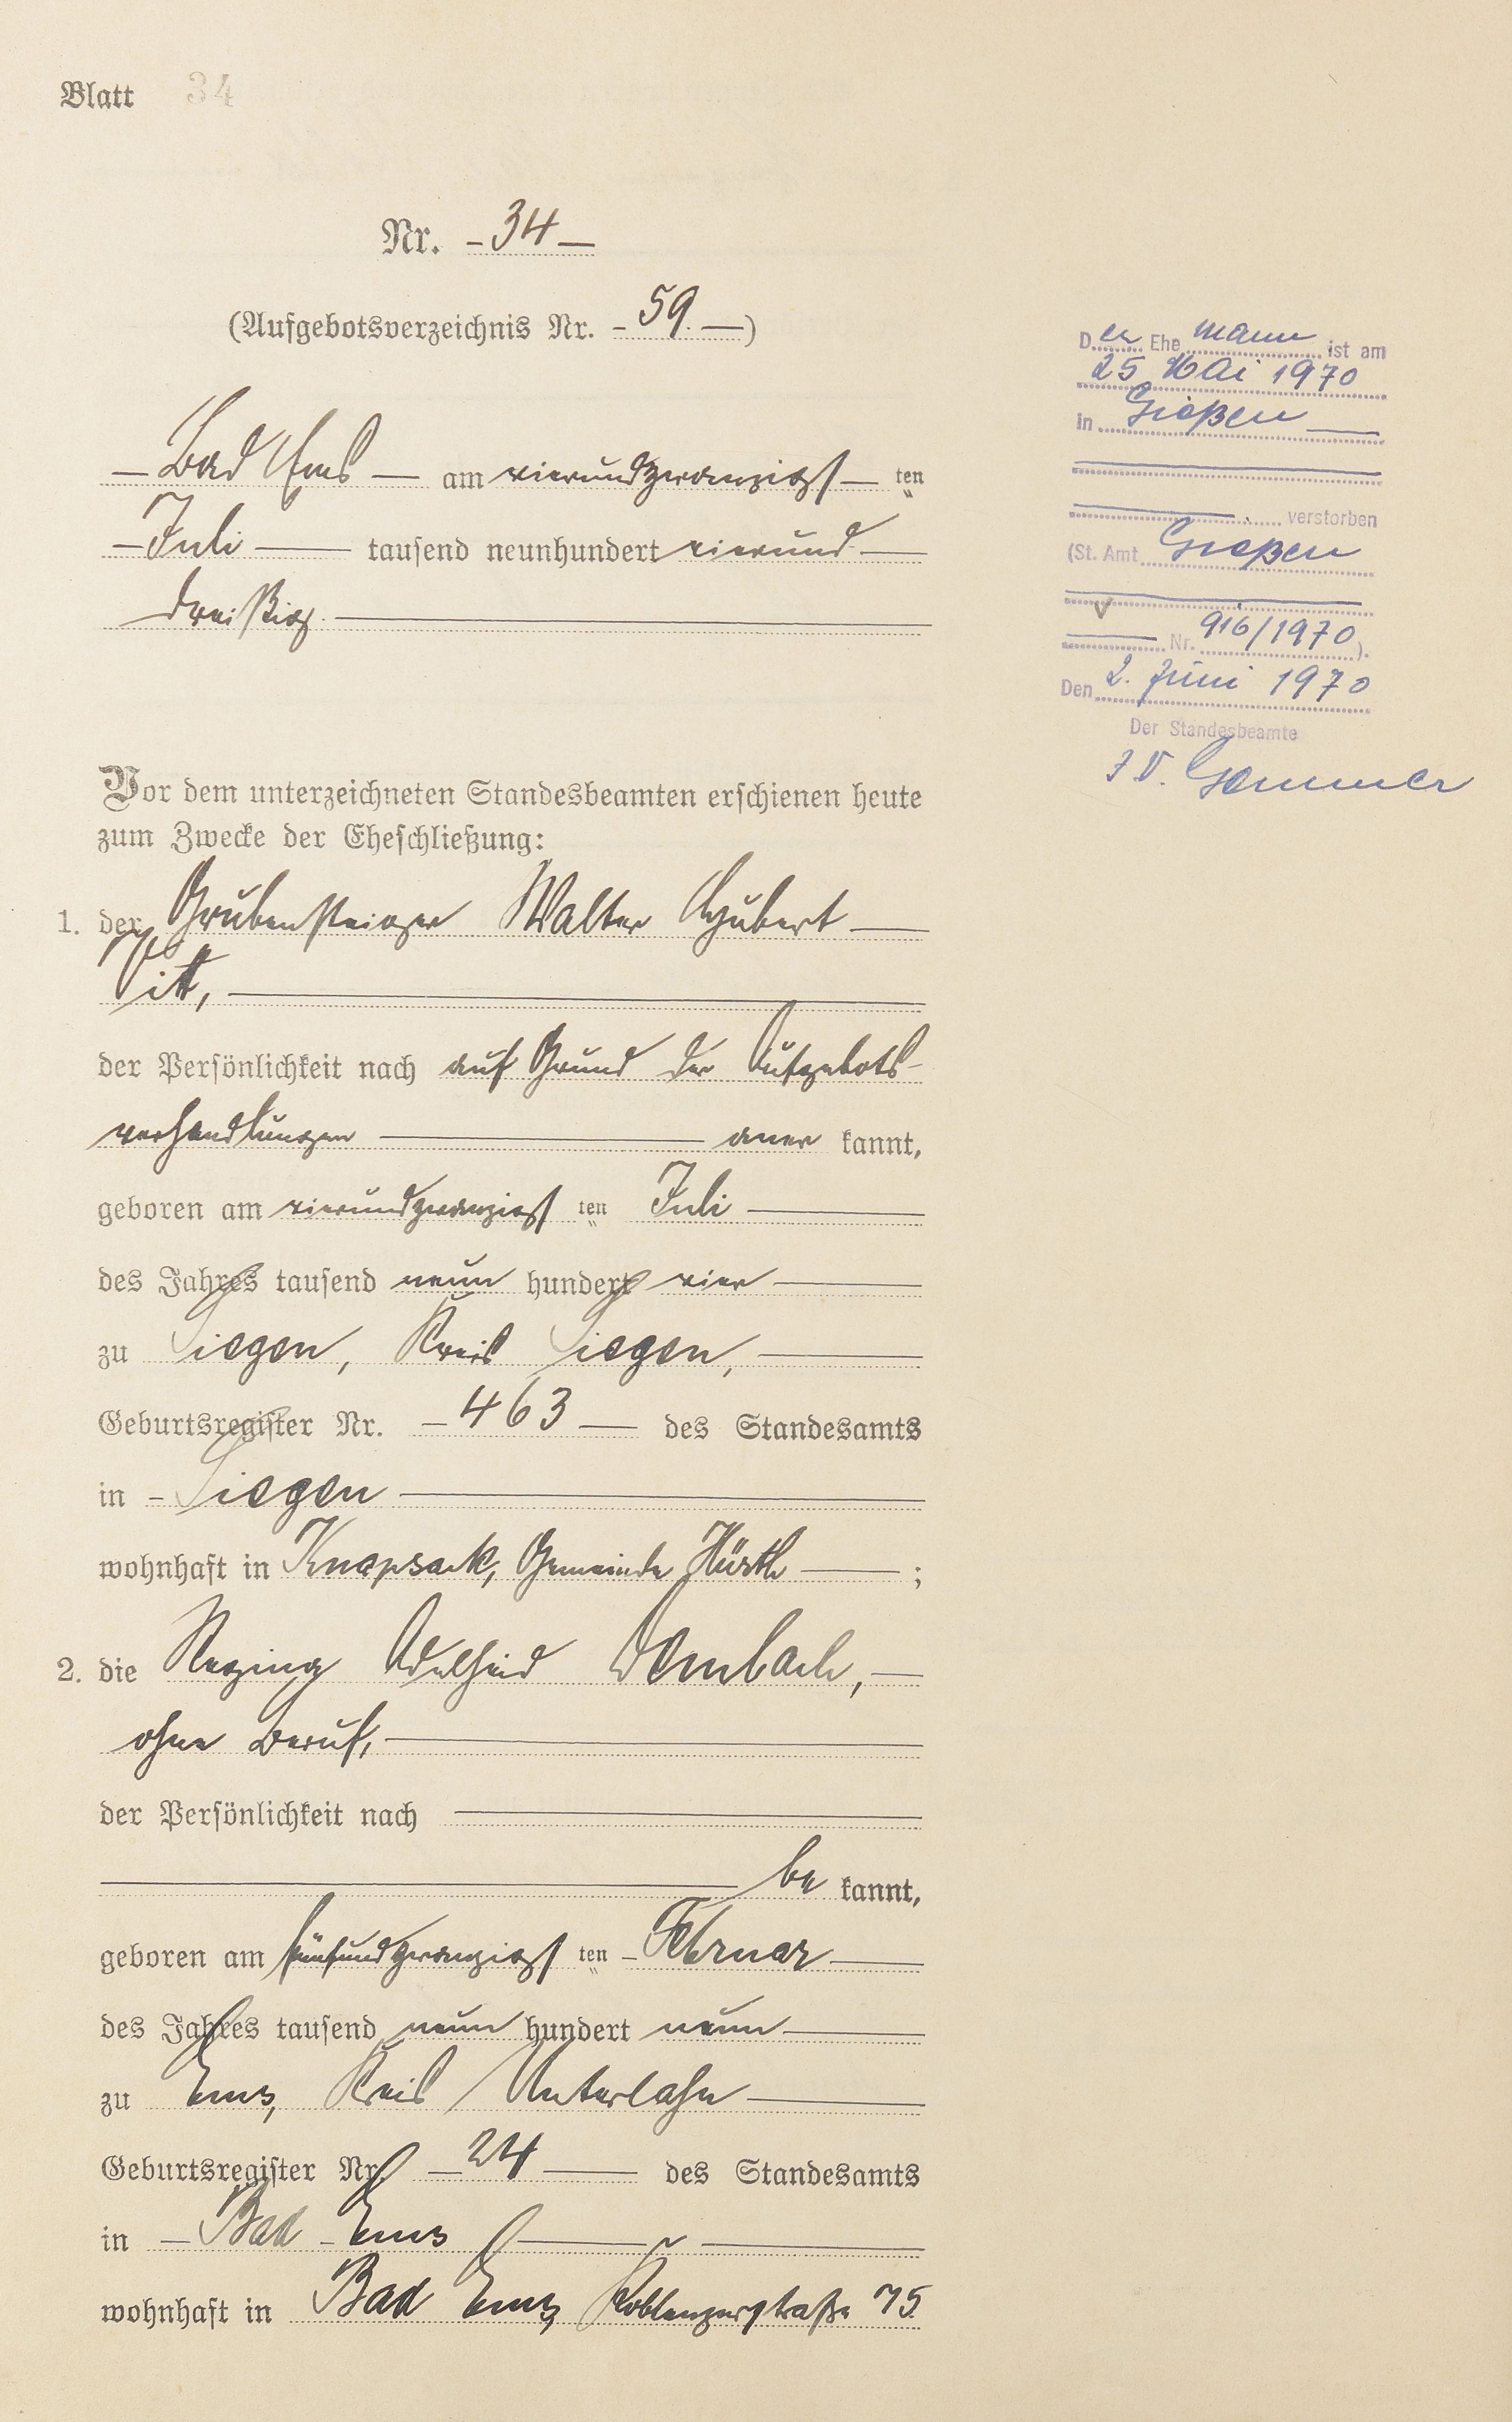 Blatt 34
Nr. - 34 -
(Aufgebotsverzeichnis Nr. - 59. -)
- Bad Ems - am vierundzwanzigst - ten
- Juli - tausend neunhundert vierund -
dreißig. -
Vor dem unterzeichneten Standesbeamten erschienen heute
zum Zwecke der Eheschließung:
1. der Grubensteiger Walter Hubert -
Vitt, -
der Persönlichkeit nach auf Grund der Aufgebots-
verhandlungen - aner kannt,
geboren am vierundzwanzigst ten Juli -
des Jahres tausend neun hundert vier -
zu Siegen, Kreis Siegen, -
Geburtsregister Nr. - 463 - des Standesamts
in - Siegen -
wohnhaft in Knapsack, Gemeinde Hürth - ;
2. die Regina Adelheid Dombach, -
ohne Beruf, -
der Persönlichkeit nach -
- be kannt,
geboren am fünfundzwanzigst ten - Februar -
des Jahres tausend neun hundert neun -
zu Ems, Kreis Unterlahn -
Geburtsregister Nr. - 24 - des Standesamts
in - Bad - Ems -
wohnhaft in Bad Ems, Koblenzerstraße 75.
Der Ehe mann ist am
25 Mai 1970
in Gießen -
verstorben
(St. Amt Gießen
Nr. 916/1970).
Den 2. Juni 1970
Der Standesbeamte
I. V. Gemmer